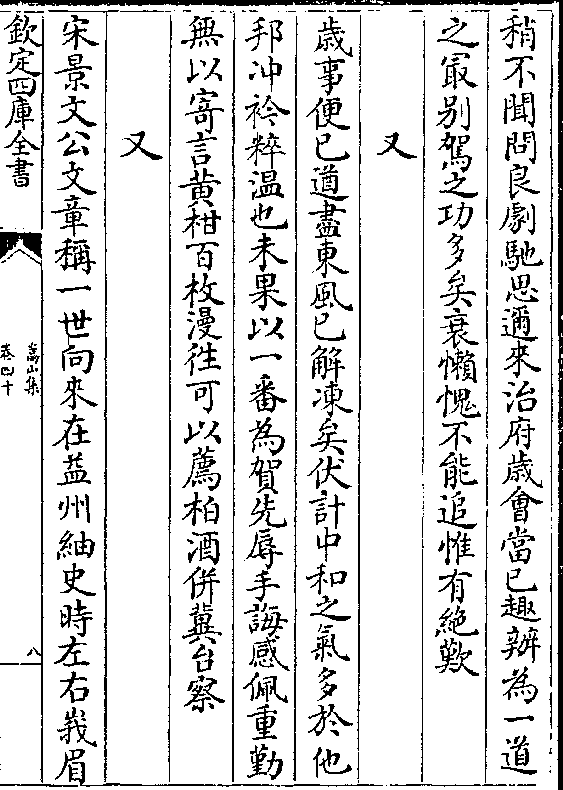 稍不聞問良劇馳思邇來治府歳㑹當已趣辨為一道
之㝡别駕之功多矣衰懶愧不能追惟有絶歎
又
歳事便已遒盡東風已解凍矣伏計中和之氣多於他
邦冲衿粹温也未果以一番為賀先辱手誨感佩重勤
無以寄言黄柑百枚漫徃可以薦柏酒併冀台察
又
宋景文公文章稱一世向來在益州紬史時左右峩眉
欽定四庫全書
嵩山集
卷四十
八